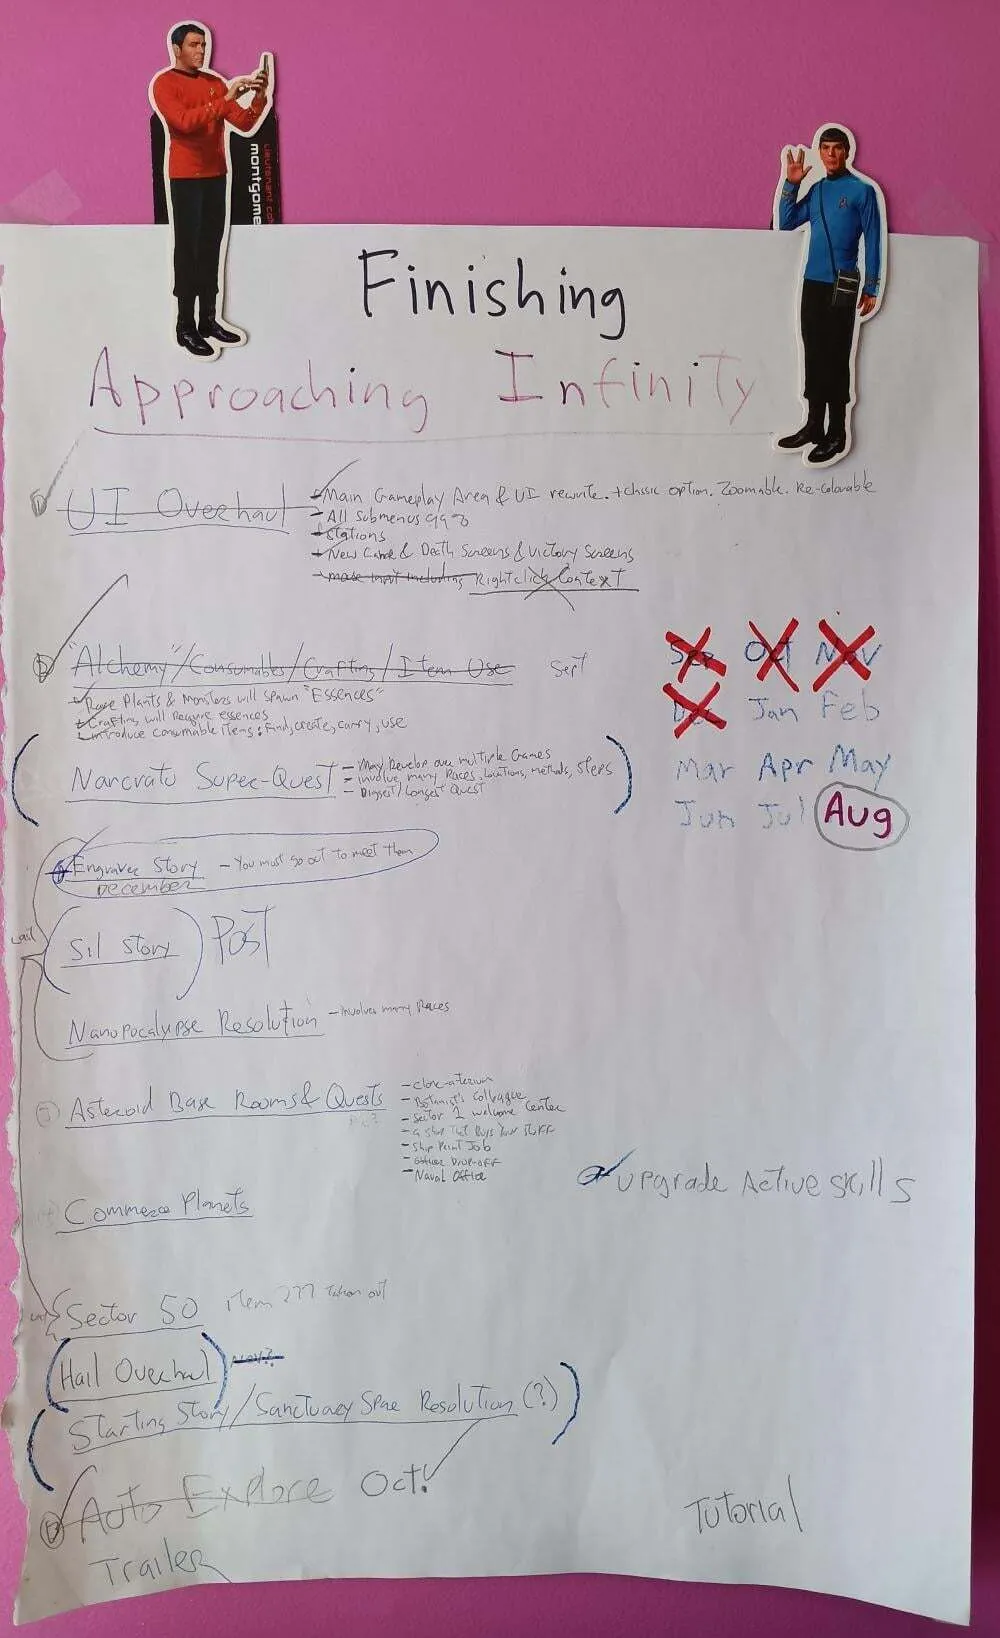 Lieutenant
montgome
Finishing
Approaching Infinity
UI Overhaul
- Main Gameplay Area & UI rewrite. + classic option. Zoomable. Re-colourable
- All submenus
- Stations
- New Game & Death Screens & Victory Screens
- mouse input including Rightclick Context
"Alchemy"/Consumables/Crafting/Item Use Sept
- Rare Plants & Monsters will spawn "Essences"
- Crafting will Require essences
- introduce consumable items: Find, create, carry, use
Sep Oct Nov
Dec Jan Feb
Mar Apr May
Jun Jul Aug
(Narcratu Super-Quest)
- May Develop over multiple Games
- involve many Races, Locations, methods, Steps
- Biggest/Longest Quest
Engraver Story - You must go out to meet Them
December
Last
(Sil Story) Post
Nanopocalypse Resolution - Involves many Races
Asteroid Base Rooms & Quests
- Clone-aterium
- Botanist's Colleague
- Sector 1 Welcome Center
- a Shop That Buys Your Stuff
- Ship Paint Job
- Officer Drop-off
- Naval Office
Upgrade Active Skills
Commerce Planets
Sector 50 item 277 Taken out
(Hail Overhaul) Nov?
(Starting Story/Sanctuary Spae Resolution (?))
Auto Explore Oct!
Tutorial
Trailer